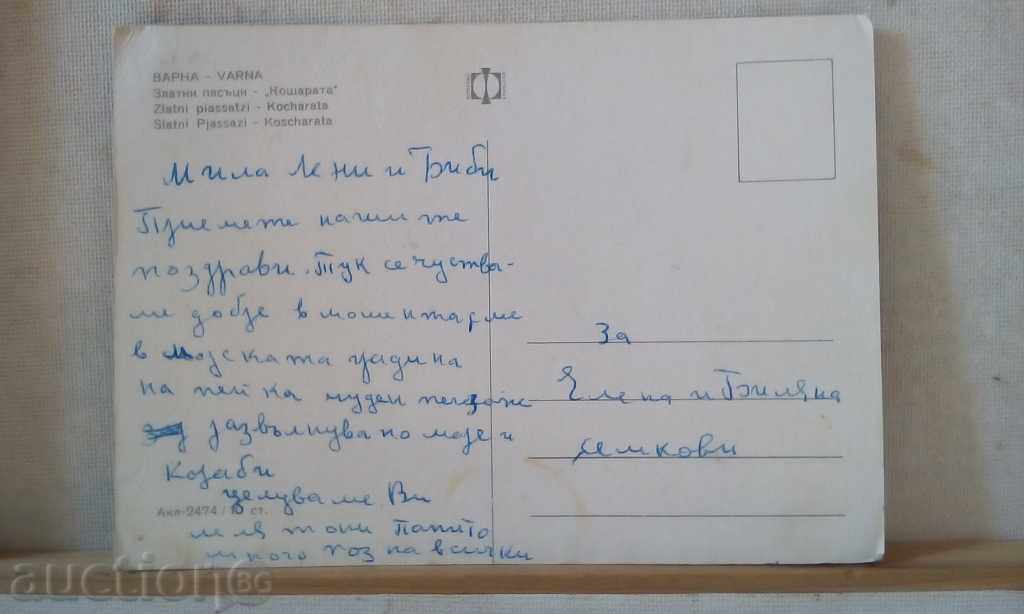 ВАРНА – VARNA
Златни пясъци – „Кошарата"
Zlatni piassatzi – Kocharata
Slatni Pjassazi – Koscharata
Мила Лени и Биби
Приемете нашите
поздрави. Тук се чуства-
ме добре в момента сме
в морската градина
на пейка чуден пейзаж
развълнувано море и
кораби
целуваме Ви
Акл-2474 / 10 ст.
много поз на всички
За
Елена и Биляна
Семкови
auction BG